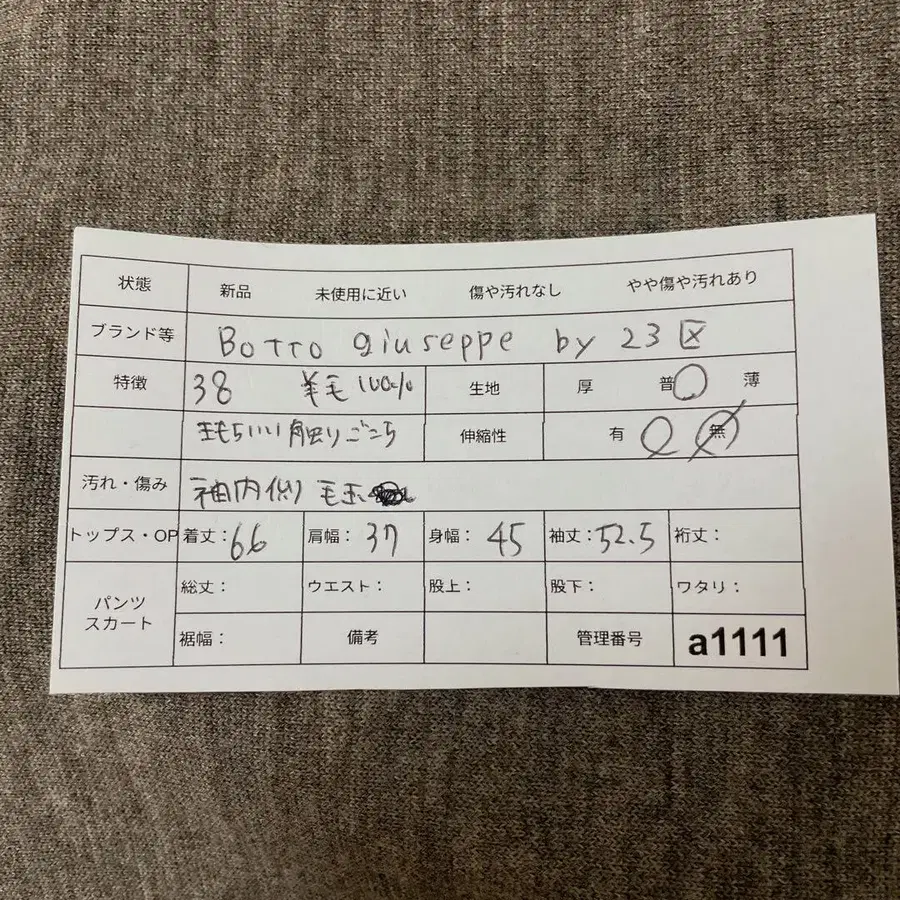 状態 新品 未使用に近い 傷や汚れなし やや傷や汚れあり
ブランド等 Botto giuseppe by 23区
特徴 38 羊毛100% 生地 厚 普 薄
きもちいい触りごこち 伸縮性 有 無
汚れ・傷み 袖内側り毛玉
トップス・OP 着丈:66 肩幅:37 身幅:45 袖丈:52.5 裄丈:
パンツ スカート 総丈: ウエスト: 股上: 股下: ワタリ:
裾幅: 備考 管理番号 a1111